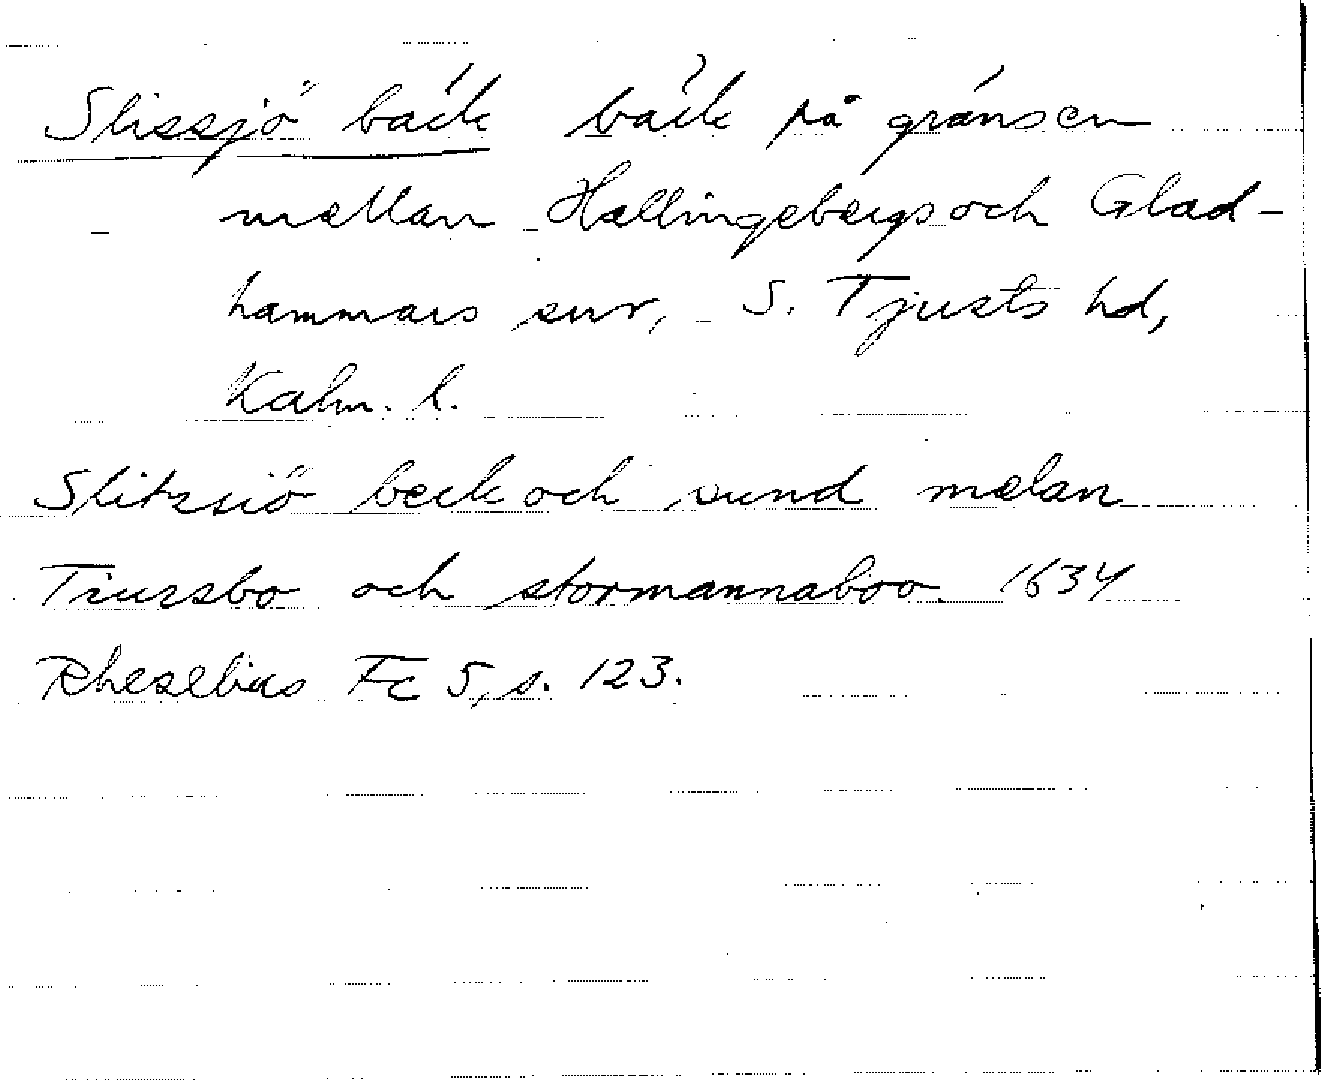 Slissjö bäck bäck på gränsen
mellan Hallingebergs och Glad-
hammars snr, S. Tjusts hd,
Kalm. l.
Slitzsiö beck och sund melan
Triurzbo och stormannaboo. 1634
Rhezelius Fc 5, s. 123.